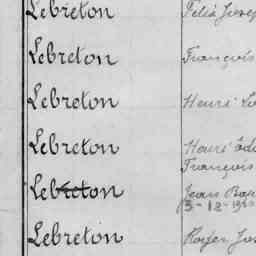 Lebreton Félix Josep
Lebreton François
Lebreton Henri
Lebreton Henri
François
Lebreton Jean
3-12-19
Lebreton Roger